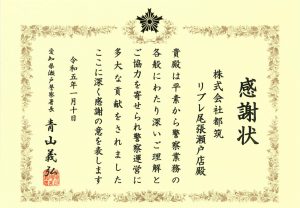 感謝状
株式会社都筑
リブレ尾張瀬戸店殿
貴殿は平素から警察業務の
各般にわたり深いご理解と
ご協力を寄せられ警察運営に
多大な貢献をされました
ここに深く感謝の意を表します
令和五年一月十日
愛知県瀬戸警察署長
青山義弘